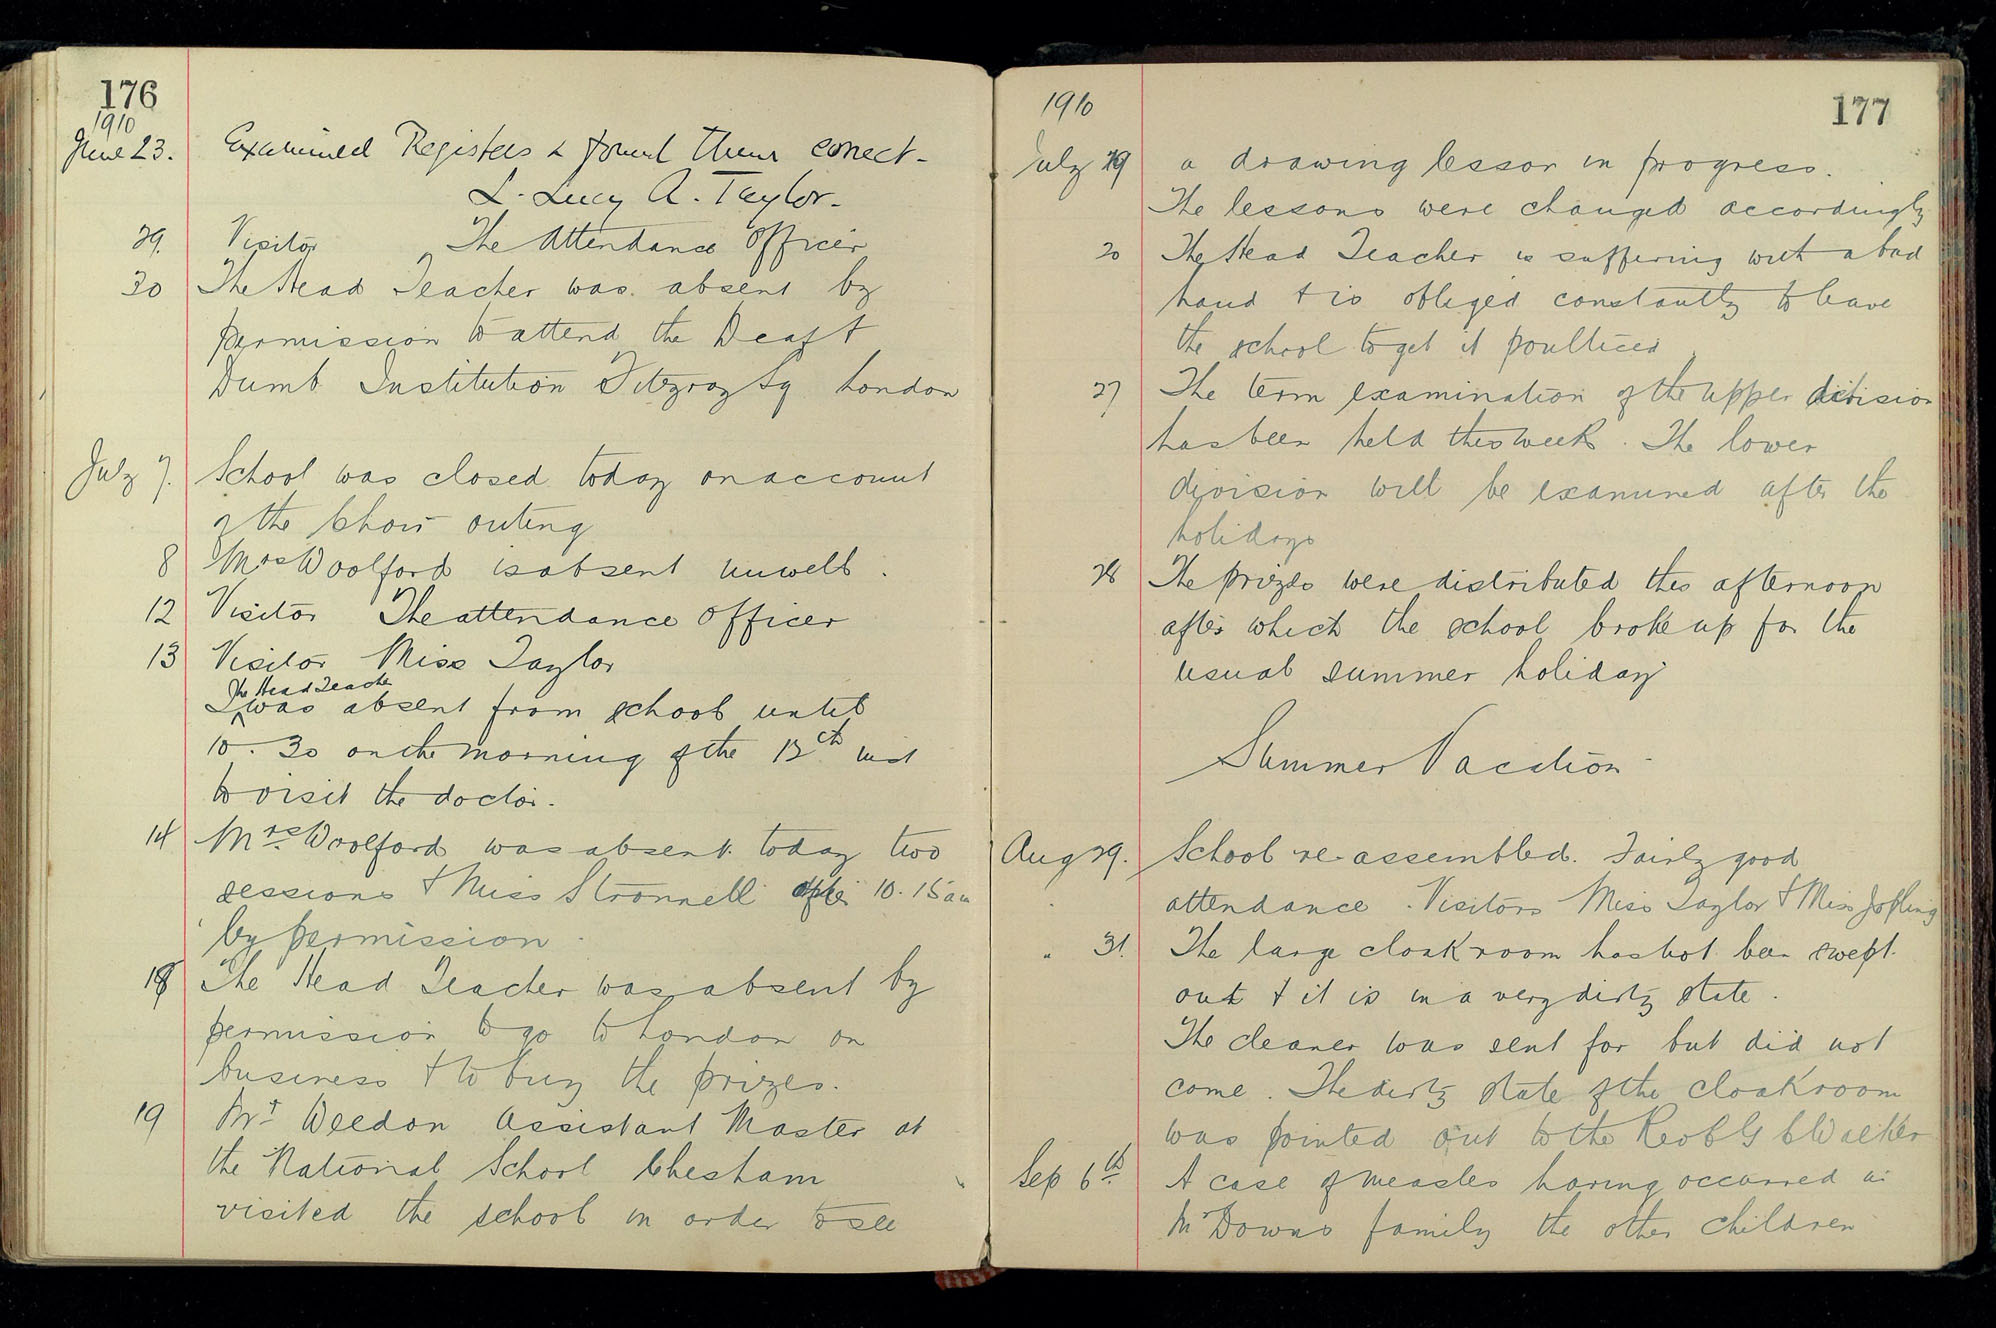 176
1910
June 23. Examined Registers & found them correct-
L. Lucy A. Taylor-
29. Visitor The Attendance Officer
30 The Head Teacher was absent by
permission to attend the Deaf &
Dumb Institution Fitzroy Sq London
July 7. School was closed today on account
of the Choir outing
8 Mrs Woolford is absent unwell.
12 Visitor The attendance officer
13 Visitor Miss Taylor
The Head Teacher
I was absent from school until
10.30 on the morning of the 12th inst
to visit the doctor.
14 Mrs. Woolford was absent today two
sessions & Miss Stronnell after 10.15 am
by permission.
18 The Head Teacher was absent by
permission to go to London on
business & to buy the prizes.
19 Mr Weedon Assistant Master at
the National School Chesham
visited the school in order to see
1910
177
July 19 a drawing lesson in progress.
The lessons were changed accordingly
20 The Head Teacher is suffering with a bad
hand & is obliged constantly to leave
the school to get it poulticed
27 The term examination of the upper division
has been held this week. The lower
division will be examined after the
holidays
28 The prizes were distributed this afternoon
after which the school broke up for the
usual summer holiday
Summer Vacation
Aug 29. School re-assembled. Fairly good
attendance. Visitors Miss Taylor & Miss Jopling
" 31. The large cloakroom has not been swept
out & it is in a very dirty state.
The cleaner was sent for but did not
come. The dirty state of the cloakroom
was pointed out to the Rev C G Walker
Sep 6th A case of measles having occurred in
Mr Downs family the other children